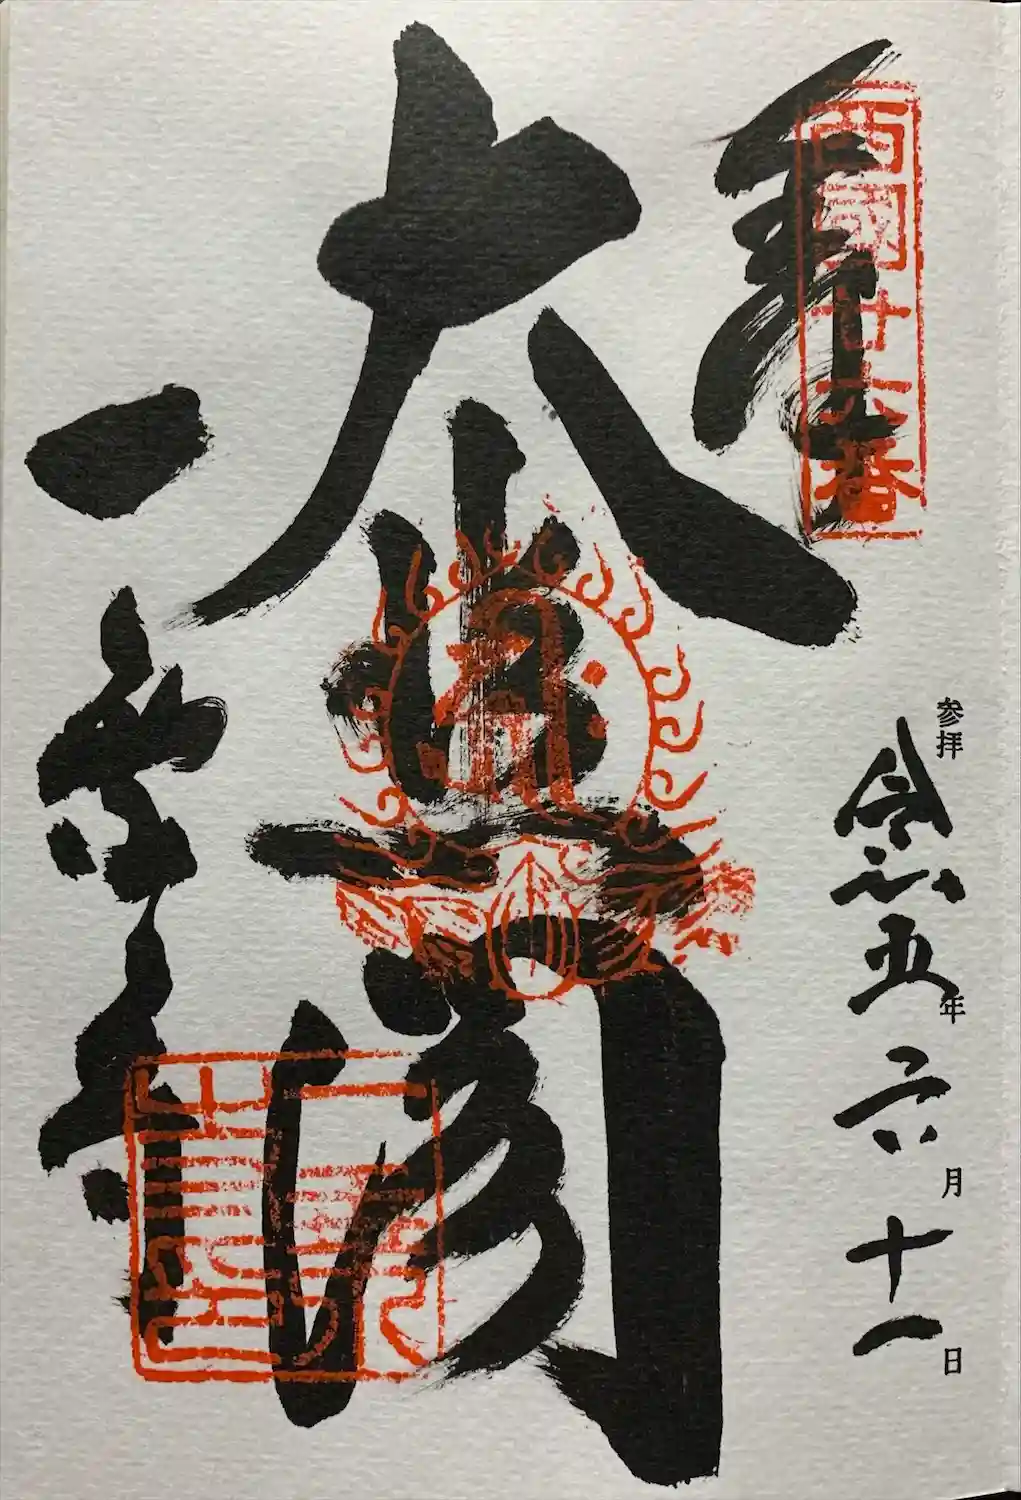 奉
西國廿六番
参拝 令和五年六月十一日
大悲閣
一乗寺